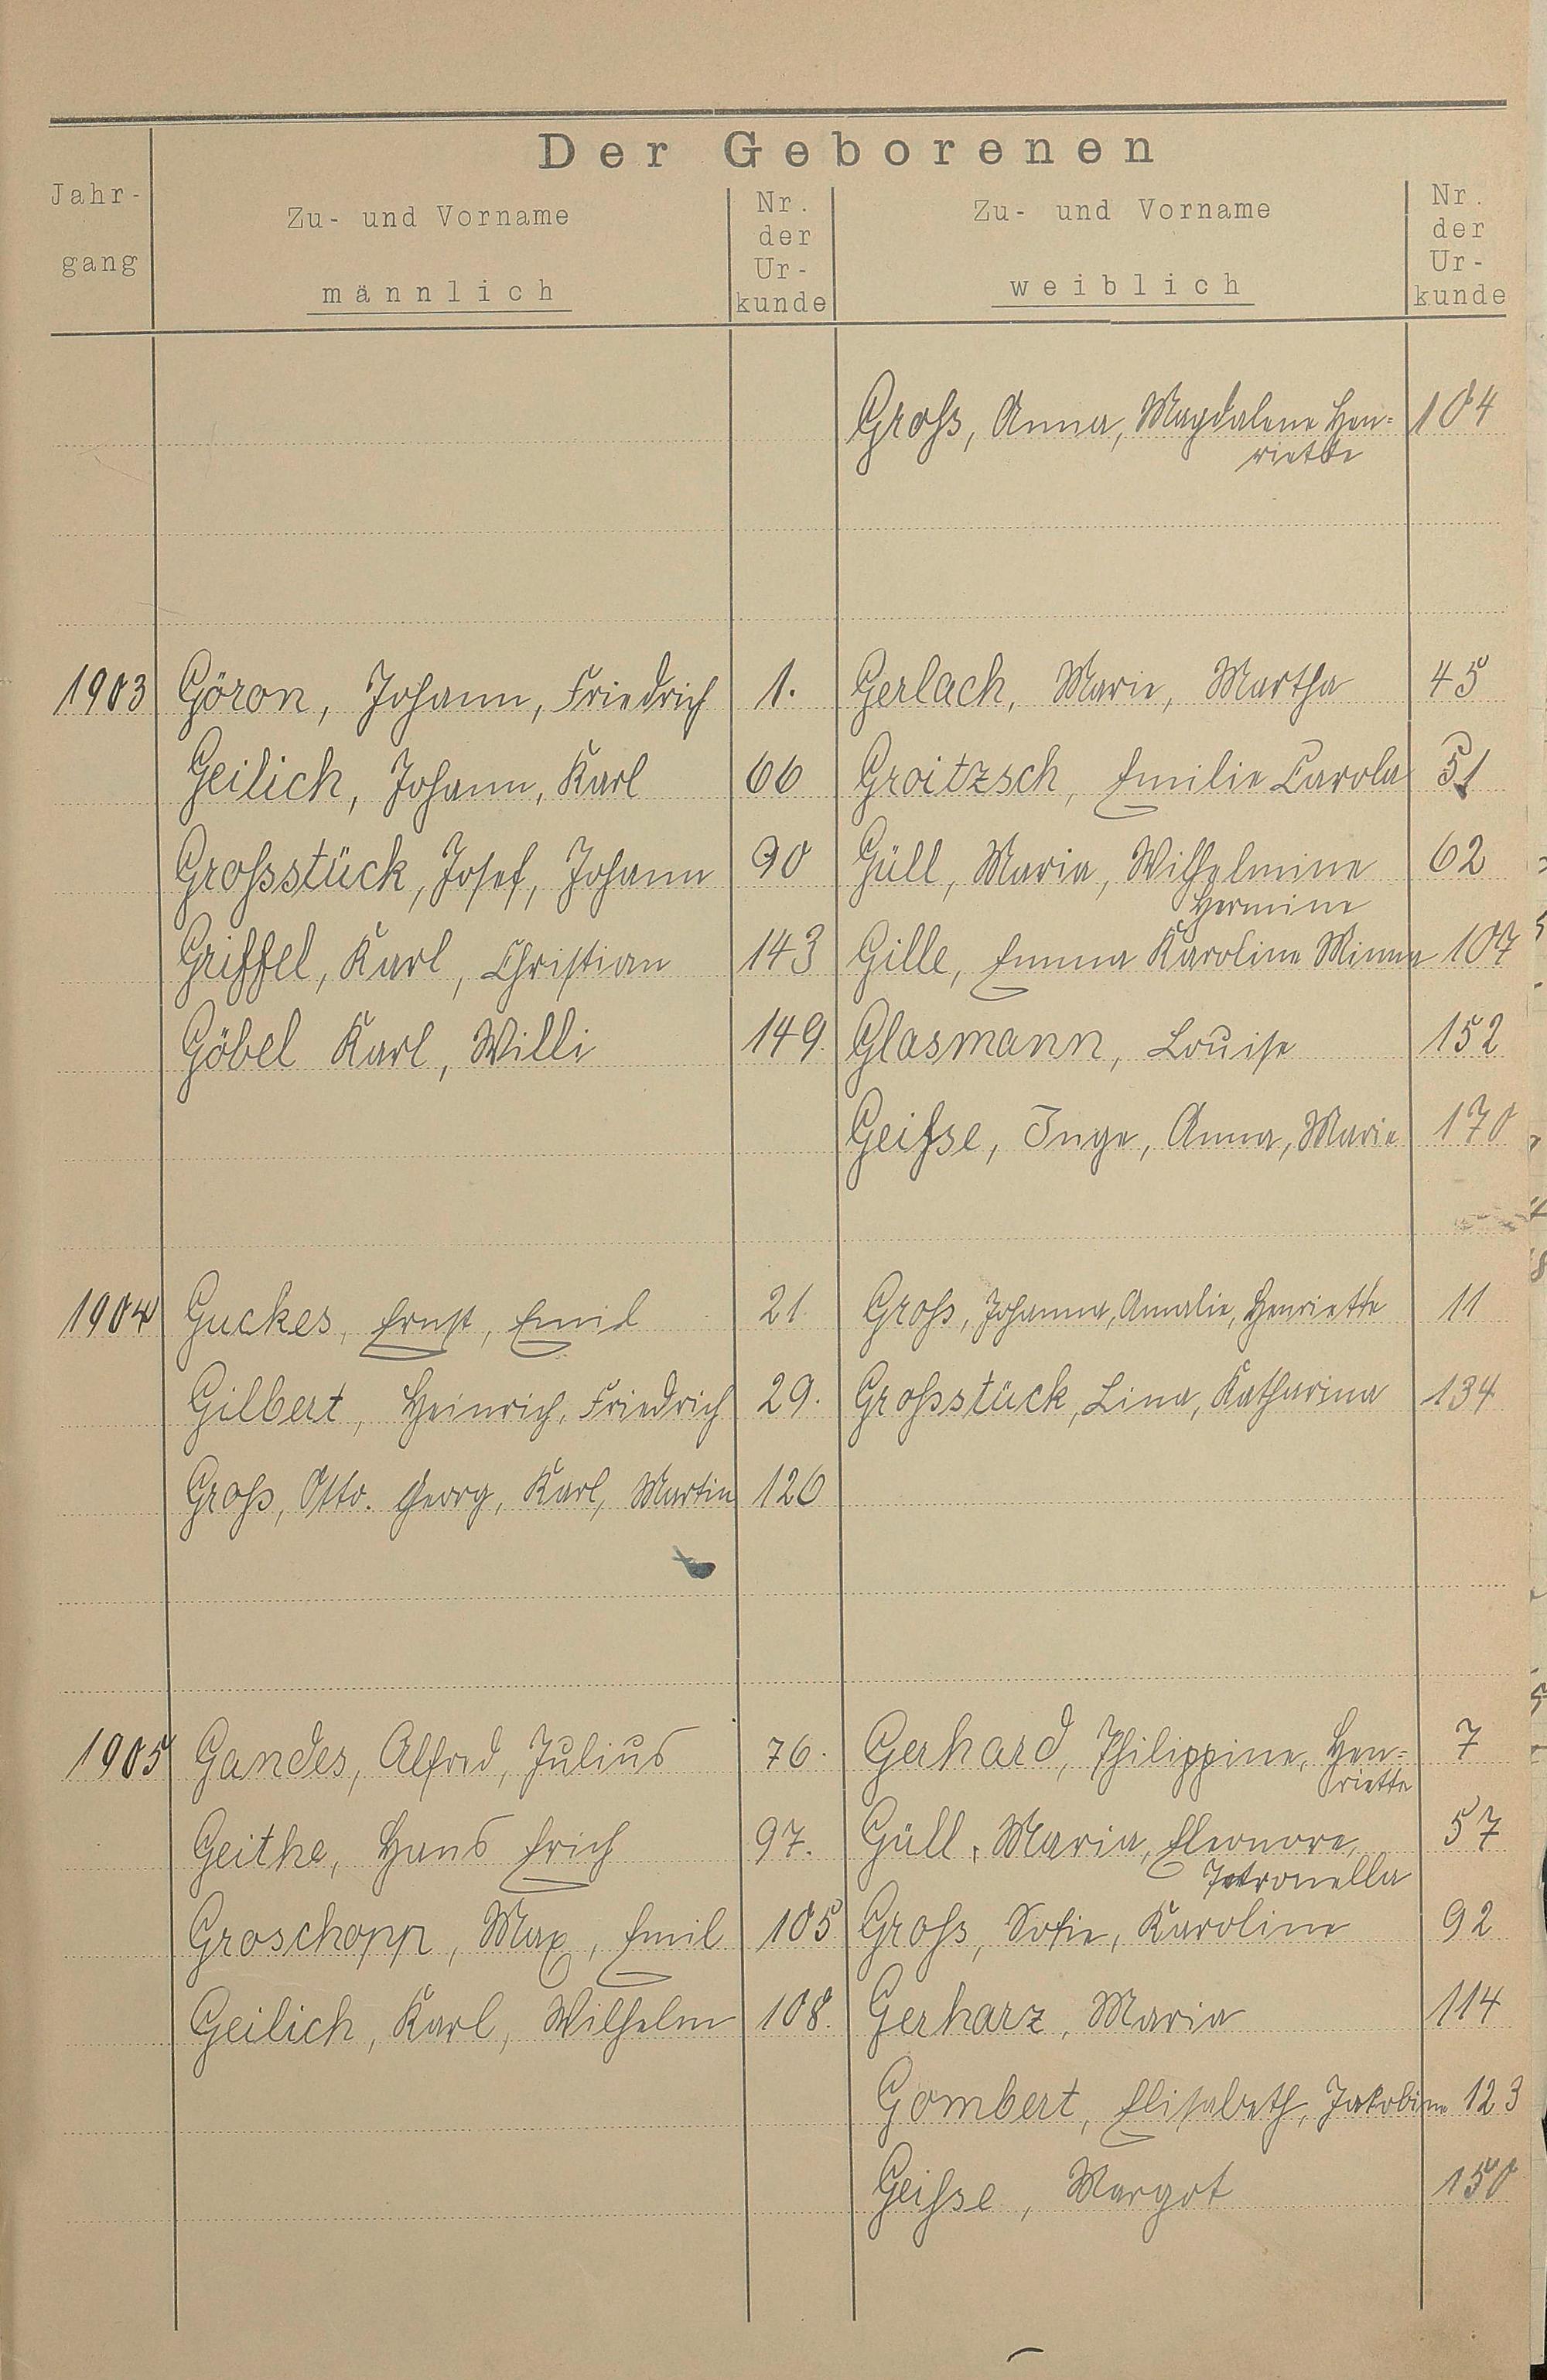 Der Geborenen
Jahr-
gang
Zu- und Vorname
männlich
Nr.
der
Ur-
kunde
Zu- und Vorname
weiblich
Nr.
der
Ur-
kunde
Groß, Anna, Magdalene Hen= 104
riette
1903 Göron, Johann, Friedrich 1. Gerlach, Marie, Martha 45
Geilich, Johann, Karl 66 Groitzsch, Emilie Carola 51
Großstück, Josef, Johann 90 Güll, Maria, Wilhelmine 62
Hermine
Griffel, Karl, Christian 143 Gille, Emma Karoline Minna 107
Göbel Karl, Willi 149. Glasmann, Louise 152
Geiße, Inge, Anna, Marie 170
1904 Guckes, Ernst, Emil 21. Groß, Johanna, Amalie, Henriette 11
Gilbert, Heinrich, Friedrich 29. Großstück, Lina, Katharina 134
Groß, Otto. Georg, Karl, Martin 126
1905 Gandes, Alfred, Julius 76. Gerhard, Philippine, Hen= 7
riette
Geithe, Hans Erich 97. Güll, Maria, Eleonore, 57
Petronella
Groschopp, Max, Emil 105 Groß, Sofie, Karoline 92
Geilich, Karl, Wilhelm 108. Gerharz, Maria 114
Gombert, Elisabeth, Jakobine 123
Geiße, Margot 150